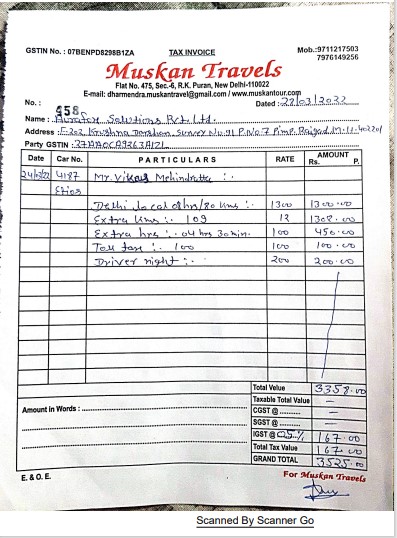 GSTIN No. : 07BENPD8298B1ZA TAX INVOICE Mob.:9711217503
7976149256
Muskan Travels
Flat No. 475, Sec.-6, R.K. Puran, New Delhi-110022
E-mail: dharmendra.muskantravel@gmail.com / www.muskantour.com
No. : 458 Dated : 22/03/2022
Name : Solutions Pvt. Ltd.
Address : E-202, Krishna Darshan, Survey No. 91 P.No.7 Raigad
Party GSTIN :
Date Car No. PARTICULARS RATE AMOUNT
Rs. P.
4187 Mr. Vikas Mehindratta :.
Etios
Delhi local 08hrs/80 kms :. 1300 1300.00
Extra kms :. 109 12 1308.00
Extra hrs :. 04 hrs 30min. 100 450.00
Toll taxe :. 100 100 100.00
Driver night :. 200 200.00
Total Velue 3358.00
Taxable Total Value –
Amount in Words :
CGST @ .......... –
SGST @ .......... –
IGST @ 05% 167.00
Total Tax Value 167.00
GRAND TOTAL 3525.00
E. & O. E. For Muskan Travels
Scanned By Scanner Go